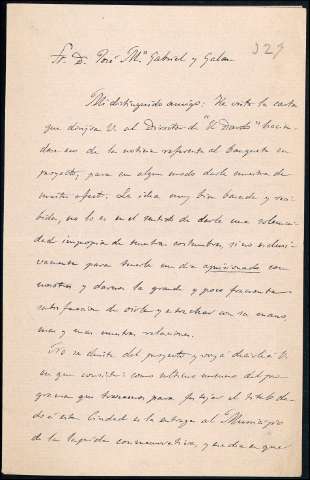 329
Sr. D. José Mª Gabriel y Galan
Mi distinguido amigo: He visto la carta
que dirijió V. al Director de "El Dardo" hacien-
dose eco de la noticia referente al banquete en
proyecto, para en algun modo darle muestra de
nuestro afecto. La idea muy bien basada y reci-
bida, no lo es en el sentido de darle una solemni-
dad impropia de nuestras costumbres, sino esclusi-
vamente para tenerle un dia aprisionado con
nosotros y darnos la grande y poco frecuente
satisfaccion de oirle y estrechar con su mano,
mas y mas nuestras relaciones.
No se desiste del proyecto y voy á decirle á V.
en que consiste: como ultimo numero del pro-
grama que tenemos para festejar el titulo da-
do á esta Ciudad es la entrega al Municipio
de la lapida conmemorativa, y ese dia en que